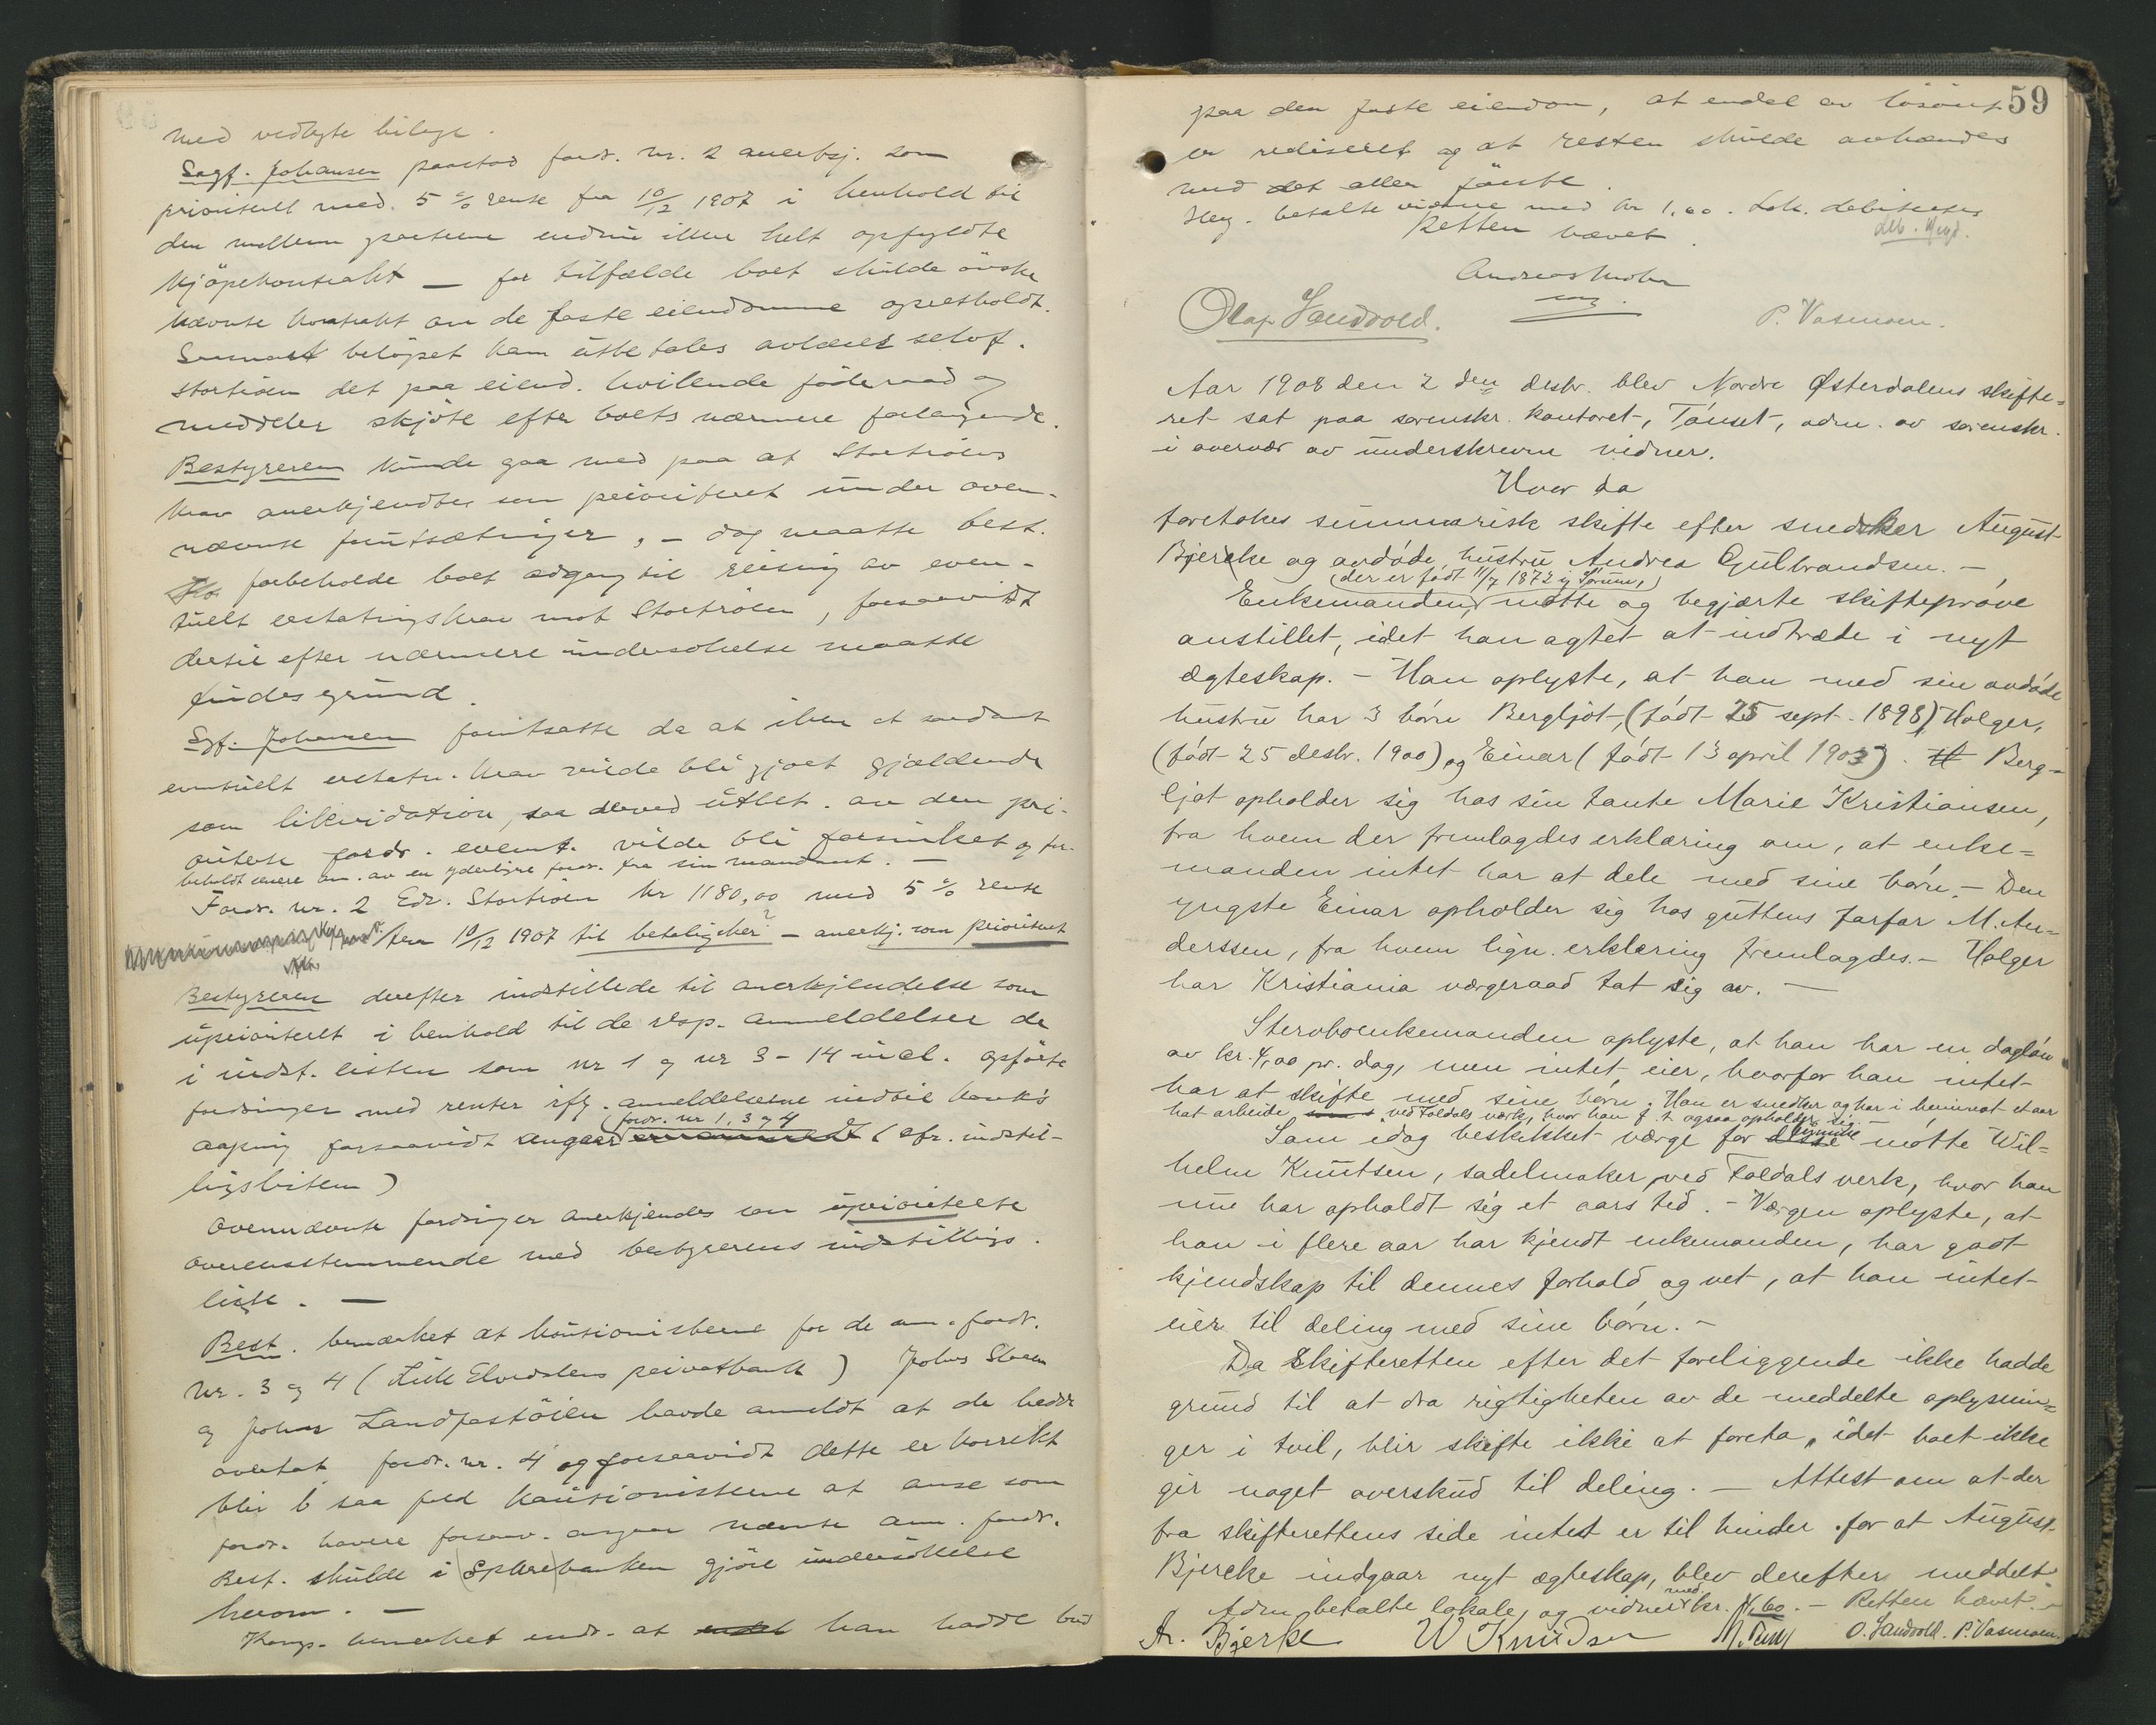 med vedlagte bilage.
Sagf. Johansen paastod fordr. nr. 2 anerkj. som
prioritert med 5 % rente fra 10/12 1907 i henhold til
den mellem parterne endnu ikke helt opfyldte
kjöpekontrakt — for tilfælde boet skulde önske
nævnte kontrakt om de faste eiendomme opretholdt.
belöpet kan utbetales
Stortröen det paa eiend. hvilende föderaad og
meddeler skjöte efter boets nærmere forlangende.
Bestyreren kunde gaa med paa at Stortröens
krav anerkjendtes som prioritert under oven-
nævnte forutsætninger, – dog maatte best.
forbeholde boet adgang til reisning av even-
tuelt erstatningskrav mot Stortröen, forsaavidt
dertil efter nærmere undersökelse maatte
findes grund.
Sgf. Johansen forutsatte da at ikke et saadant
eventuelt erstatn. krav vilde bli gjort gjældende
som likvidation, saa derved utbet. av den pri-
oriterte fordr. event. vilde bli forsinket og for-
beholdt senere an. av en yderligere fordr. fra sin mandant. —
Fordr. nr. 2 Edv. Stortröen kr 1180,00 med 5 % rente
fra 10/12 1907 til betaling sker – anerkj. som prioritert
Bestyreren derefter indstillede til anerkjendelse som
uprioritert i henhold til de resp. anmeldelser de
i indst. listen som nr 1 og nr 3 – 14 incl. opförte
fordringer med renter iflg. anmeldelserne indtil konk's
fordr. nr 1, 3 og 4
aapning forsaavidt angaar (cfr. indstil-
lingslisten)
Ovennævnte fordringer anerkjendes som uprioriterte
overensstemmende med bestyrerens indstillings-
liste. —
Best. bemærket at kautionisterne for de an. fordr.
nr. 3 og 4 (Lille Elvedalens privatbank) Johns Steen
og Johan Landfastöien havde anmeldt at de hadde
overtat fordr. nr. 4 og forsaavidt dette er korrekt
blir i saa fald kautionisterne at anse som
fordr. havere forsaav. angaar nævnte anm. fordr.
Best. skulde i Sparebanken gjöre undersökelse
herom. —
Kong. bemerket endv. at han hadde bud
59
paa den faste eiendom, at endel av lösöret
er realisert og at resten skulde avhændes
med det aller förste.
betalte vidne med kr 1,60. Lok. debiteres
Retten hævet.
deb.
Andreas Mohr
Olaf Sandvold.
P. Vasmoen.
Aar 1908 den 2den desbr. blev Nordre Østerdalens skifte-
ret sat paa sorenskr. kontoret, Tönset, adm. av sorenskr.
i overvær av underskrevne vidner.
Hvor da
foretokes summarisk skifte efter snedker August
Bjercke og avdöde hustru Andrea Gulbrandsen. —
(der er födt 11/7 1872 i Sörum,)
Enkemanden mötte og begjærte skifteprøve
anstillet, idet han agtet at indtræde i nyt
ægteskap. – Han oplyste, at han med sin avdöde
hustru har 3 börn Bergljot, (födt 25 sept. 1898) Holger,
(födt 25 desbr. 1900) og Einar (födt 13 april 1903). Berg-
ljot opholder sig hos sin tante Marie Kristiansen,
fra hvem der fremlagdes erklæring om, at enke-
manden intet har at dele med sine börn. – Den
yngste Einar opholder sig hos guttens farfar M. An-
derssen, fra hvem lign. erklæring fremlagdes. – Holger
har Kristiania værgeraad tat sig av. —
Stervboenkemanden oplyste, at han har en daglön
av kr. 4,00 pr. dag, men intet eier, hvorfor han intet
har at skifte med sine börn. Han er snedker og har i henimot et aar
hat arbeide ved Foldals værk, hvor han f. t. ogsaa opholder sig. –
Som idag beskikket værge for disse mötte Wil-
helm Knutsen, sadelmaker ved Foldals verk, hvor han
nu har opholdt sig et aars tid. – Værgen oplyste, at
han i flere aar har kjendt enkemanden, har godt
kjendskap til dennes forhold og vet, at han intet
eier til deling med sine börn. –
Da Skifteretten efter det foreliggende ikke hadde
grund til at dra rigtigheten av de meddelte oplysnin-
ger i tvil, blir skifte ikke at foreta, idet boet ikke
gir noget overskud til deling. — Attest om at der
fra skifterettens side intet er til hinder for at August
Bjercke indgaar nyt ægteskap, blev derefter meddelt
Adm. betalte lokale, og vidner med kr. 1.60. – Retten hævet. –
A. Bjerke W Knudsen O. Sandvold. P. Vasmoen.